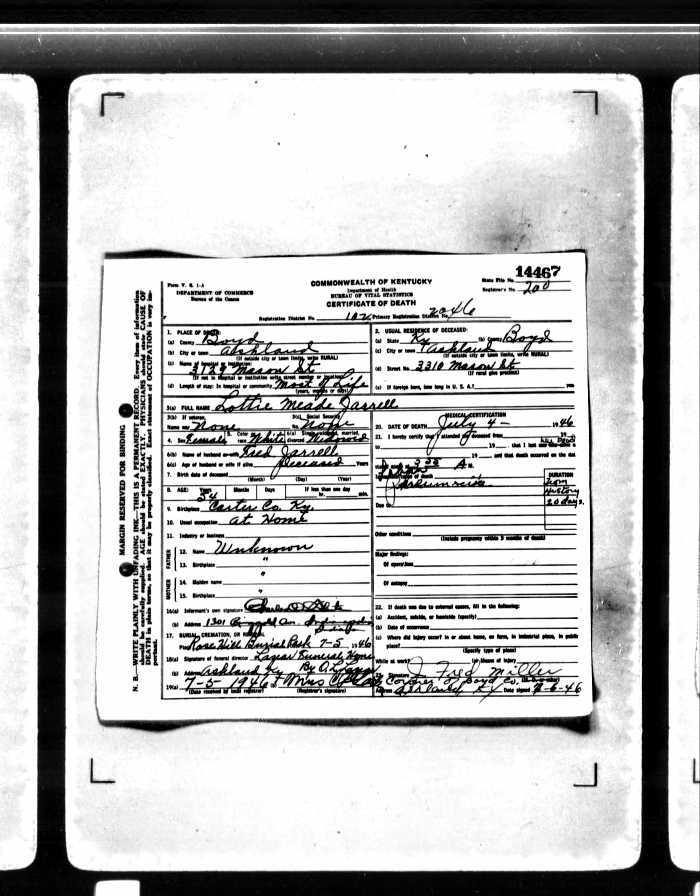 14467
Form V. S. 1-A
DEPARTMENT OF COMMERCE
Bureau of the Census
COMMONWEALTH OF KENTUCKY
Department of Health
BUREAU OF VITAL STATISTICS
CERTIFICATE OF DEATH
State File No.
Registrar's No. 200
Registration District No. 102 Primary Registration District No. 2046
MARGIN RESERVED FOR BINDING
N. B.—WRITE PLAINLY WITH UNFADING INK—THIS IS A PERMANENT RECORD. Every item of information
should be carefully supplied. AGE should be stated EXACTLY. PHYSICIANS should state CAUSE OF
DEATH in plain terms, so that it may be properly classified. Exact statement of OCCUPATION is very im-
portant.
1. PLACE OF DEATH:
(a) County Boyd
(b) City or town Ashland
(If outside city or town limits, write RURAL)
(c) Name of hospital or institution: Mason St
(If not in hospital or institution write street number or location)
(d) Length of stay: In hospital or community Most of Life
(years, months or days)
2. USUAL RESIDENCE OF DECEASED:
(a) State Ky (b) County Boyd
(c) City or town Ashland
(If outside city or town limits, write RURAL)
(d) Street No. 3310 Mason St
(If rural give precinct)
(e) If foreign born, how long in U. S. A.? yrs
3(a) FULL NAME Lottie Meade Jarrell
3(b) If veteran,
Name war None
3(c) Social Security
No. None
4. Sex Female 5. Color or race White 6(a) Single, widowed, married, divorced Widowed
6(b) Name of husband or wife Fred Jarrell
6(c) Age of husband or wife if alive Deceased Years
7. Birth date of deceased
(Month) (Day) (Year)
8. AGE: Years 54 Months Days If less than one day
hr. min.
9. Birthplace Carter Co. Ky.
10. Usual occupation At Home
11. Industry or business
FATHER
12. Name Unknown
13. Birthplace "
MOTHER
14. Maiden name "
15. Birthplace "
16(a) Informant's own signature
(b) Address 1301
17. BURIAL, CREMATION, OR REMOVAL
Place Rose Hill Burial Park 7-5 1946
18(a) Signature of funeral director Lazear Funeral Home
(b) Address Ashland Ky By
19(a) 7-5 1946 Mrs
(Date received by local registrar) (Registrar's signature)
MEDICAL CERTIFICATION
20. DATE OF DEATH July 4 - 1946
21. I hereby certify that I attended deceased from 19
to 19 that I last saw
19 and that death occurred on the date
A. M.
DURATION
from
History
20 days.
Due to
Other conditions
(Include pregnancy within 3 months of death)
Major findings:
Of operations
Of autopsy
22. If death was due to external causes, fill in the following:
(a) Accident, suicide, or homicide (specify)
(b) Date of occurrence
(c) Where did injury occur? In or about home, on farm, in industrial place, in public
place?
(Specify type of place)
While at work? (e) Means of injury
Signature J Fred Miller
Coroner of Boyd Co.
Address Ashland Ky Date signed 7-6-46